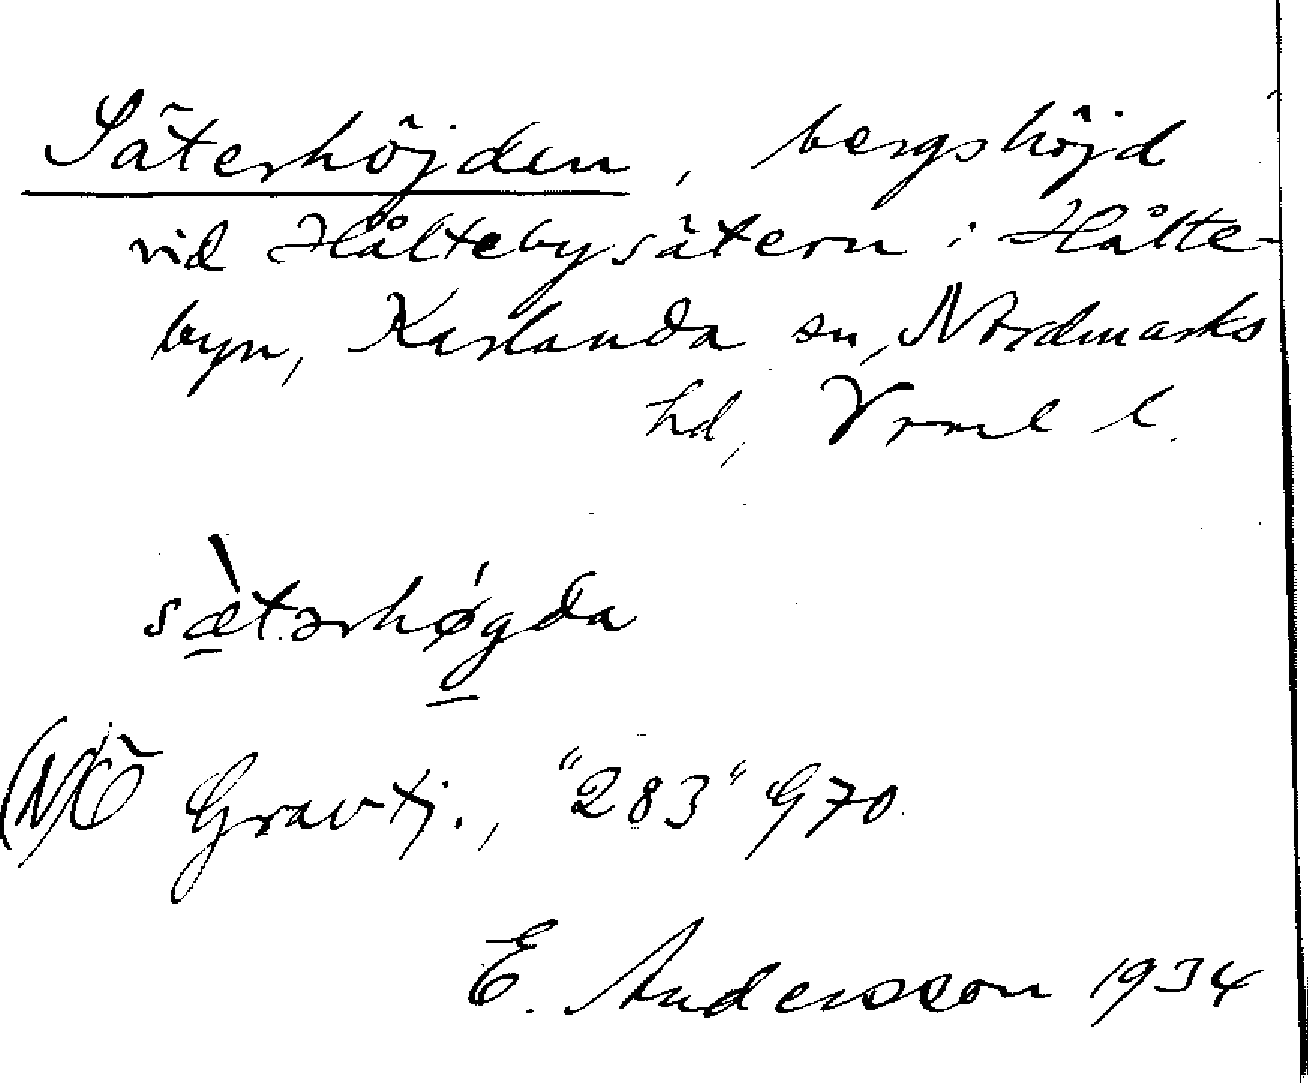 Säterhöjden, bergshöjd
vid Håltebysätern i Hålte-
byn, Karlanda sn, Nordmarks
hd, Vrml l.
sæ̀tərhǿgda
(NÖ Gravtj., "283" G70
E. Andersson 1934